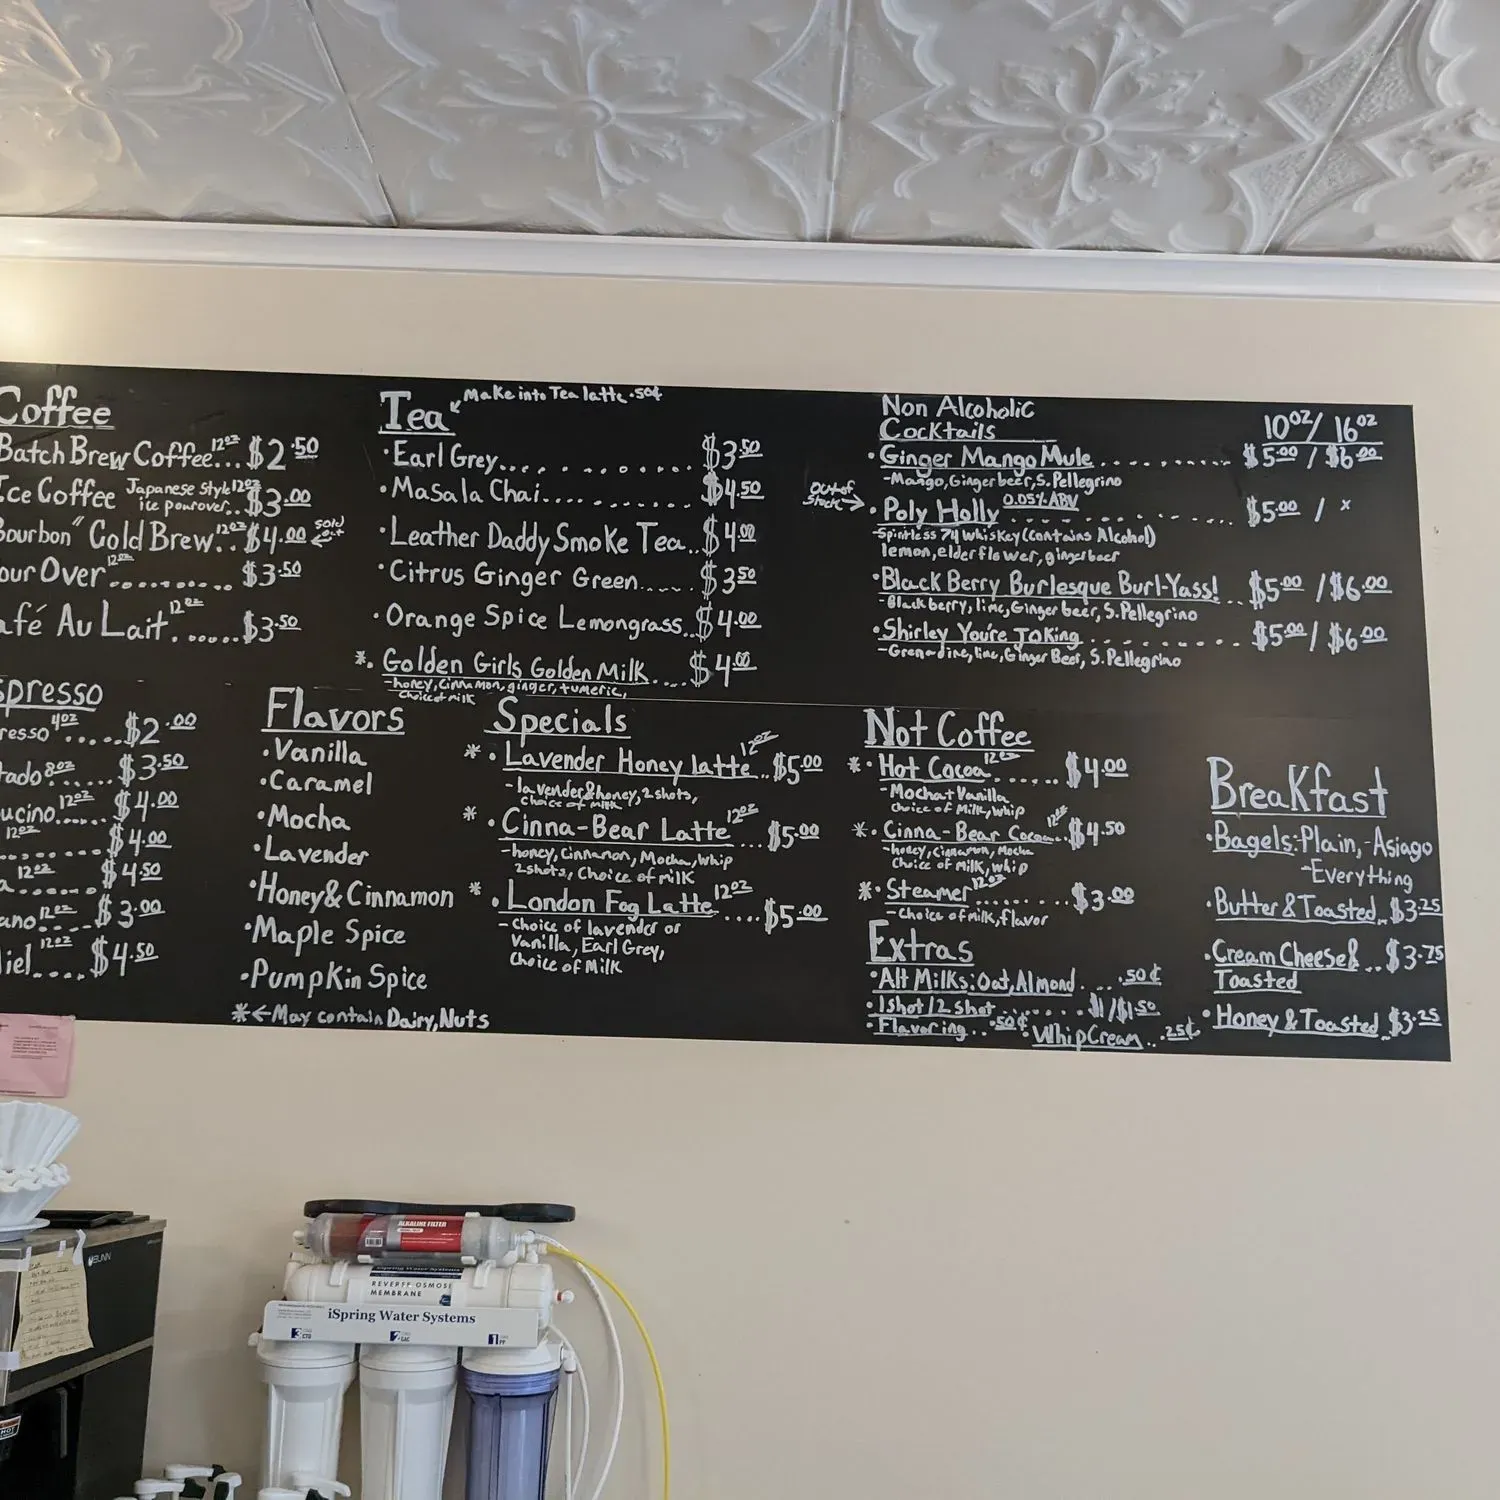 Coffee
Batch Brew Coffee 12oz... $2.50
Ice Coffee Japanese style 12oz
ice pourover.. $3.00
Bourbon" Cold Brew 12oz.. $4.00 ← sold out
our Over 12oz......... $3.50
afé Au Lait 12oz...... $3.50
spresso
resso 4oz..... $2.00
tado 8oz...... $3.50
ucino 12oz..... $4.00
12oz........ $4.00
a 12oz....... $4.50
ano 12oz... $3.00
iel 12oz.... $4.50
Tea ← Make into Tea latte .50¢
•Earl Grey............ $3.50
•Masala Chai........... $4.50
•Leather Daddy Smoke Tea.. $4.00
•Citrus Ginger Green..... $3.50
•Orange Spice Lemongrass.. $4.00
*• Golden Girls Golden Milk.... $4.00
-honey, cinnamon, ginger, tumeric,
choice of milk
Non Alcoholic
Cocktails 10oz/ 16oz
•Ginger Mango Mule........... $5.00 / $6.00
-Mango, Ginger beer, S. Pellegrino
out of stock → •Poly Holly 0.05% ABV........... $5.00 / x
-Spiritless 74 Whiskey (contains Alcohol)
lemon, elderflower, ginger beer
•Black Berry Burlesque Burl-Yass!.. $5.00 / $6.00
-Blackberry, lime, Ginger beer, S. Pellegrino
•Shirley You're Joking........... $5.00 / $6.00
-Grenadine, lime, Ginger Beer, S. Pellegrino
Flavors
•Vanilla
•Caramel
•Mocha
•Lavender
•Honey & Cinnamon
•Maple Spice
•Pumpkin Spice
* ← May contain Dairy, Nuts
Specials
* •Lavender Honey latte 12oz.. $5.00
-lavender & honey, 2 shots,
choice of milk
* •Cinna-Bear Latte 12oz.. $5.00
-honey, Cinnamon, Mocha, whip
2 shots, Choice of milk
* •London Fog Latte 12oz.... $5.00
-Choice of lavender or
Vanilla, Earl Grey,
Choice of Milk
Not Coffee
*•Hot Cocoa 12oz...... $4.00
-Mocha + Vanilla
Choice of Milk, whip
*•Cinna-Bear Cocoa 12oz.. $4.50
-honey, cinnamon, Mocha
Choice of Milk, whip
*•Steamer 12oz........ $3.00
-Choice of milk, flavor
Extras
•Alt Milks: Oat, Almond.... .50¢
•1 shot/2 shot........ $1/$1.50
•Flavoring.. .50¢ •Whip Cream.. .25¢
Breakfast
•Bagels: Plain, -Asiago
-Everything
•Butter & Toasted.. $3.25
•Cream Cheese & .. $3.75
Toasted
•Honey & Toasted.. $3.25
BUNN
ALKALINE FILTER
iSpring Water Systems
REVERSE OSMOSIS
MEMBRANE
iSpring Water Systems
3 CTO
2 GAC
1 PP
HOT